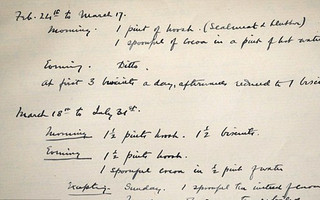 Feb. 24th to March 17.
Morning. 1 pint of hoosh. (Sealmeat & blubber)
1 spoonful of cocoa in a pint of hot water
Evening. Ditto.
At first 3 biscuits a day, afterwards reduced to 1 biscui
March 18th to July 31st.
Morning 1½ pints hoosh. 1½ biscuits.
Evening 1½ pints hoosh.
1 spoonful cocoa in ½ pint of water
Excepting Sunday. 1 spoonful tea instead of cocoa